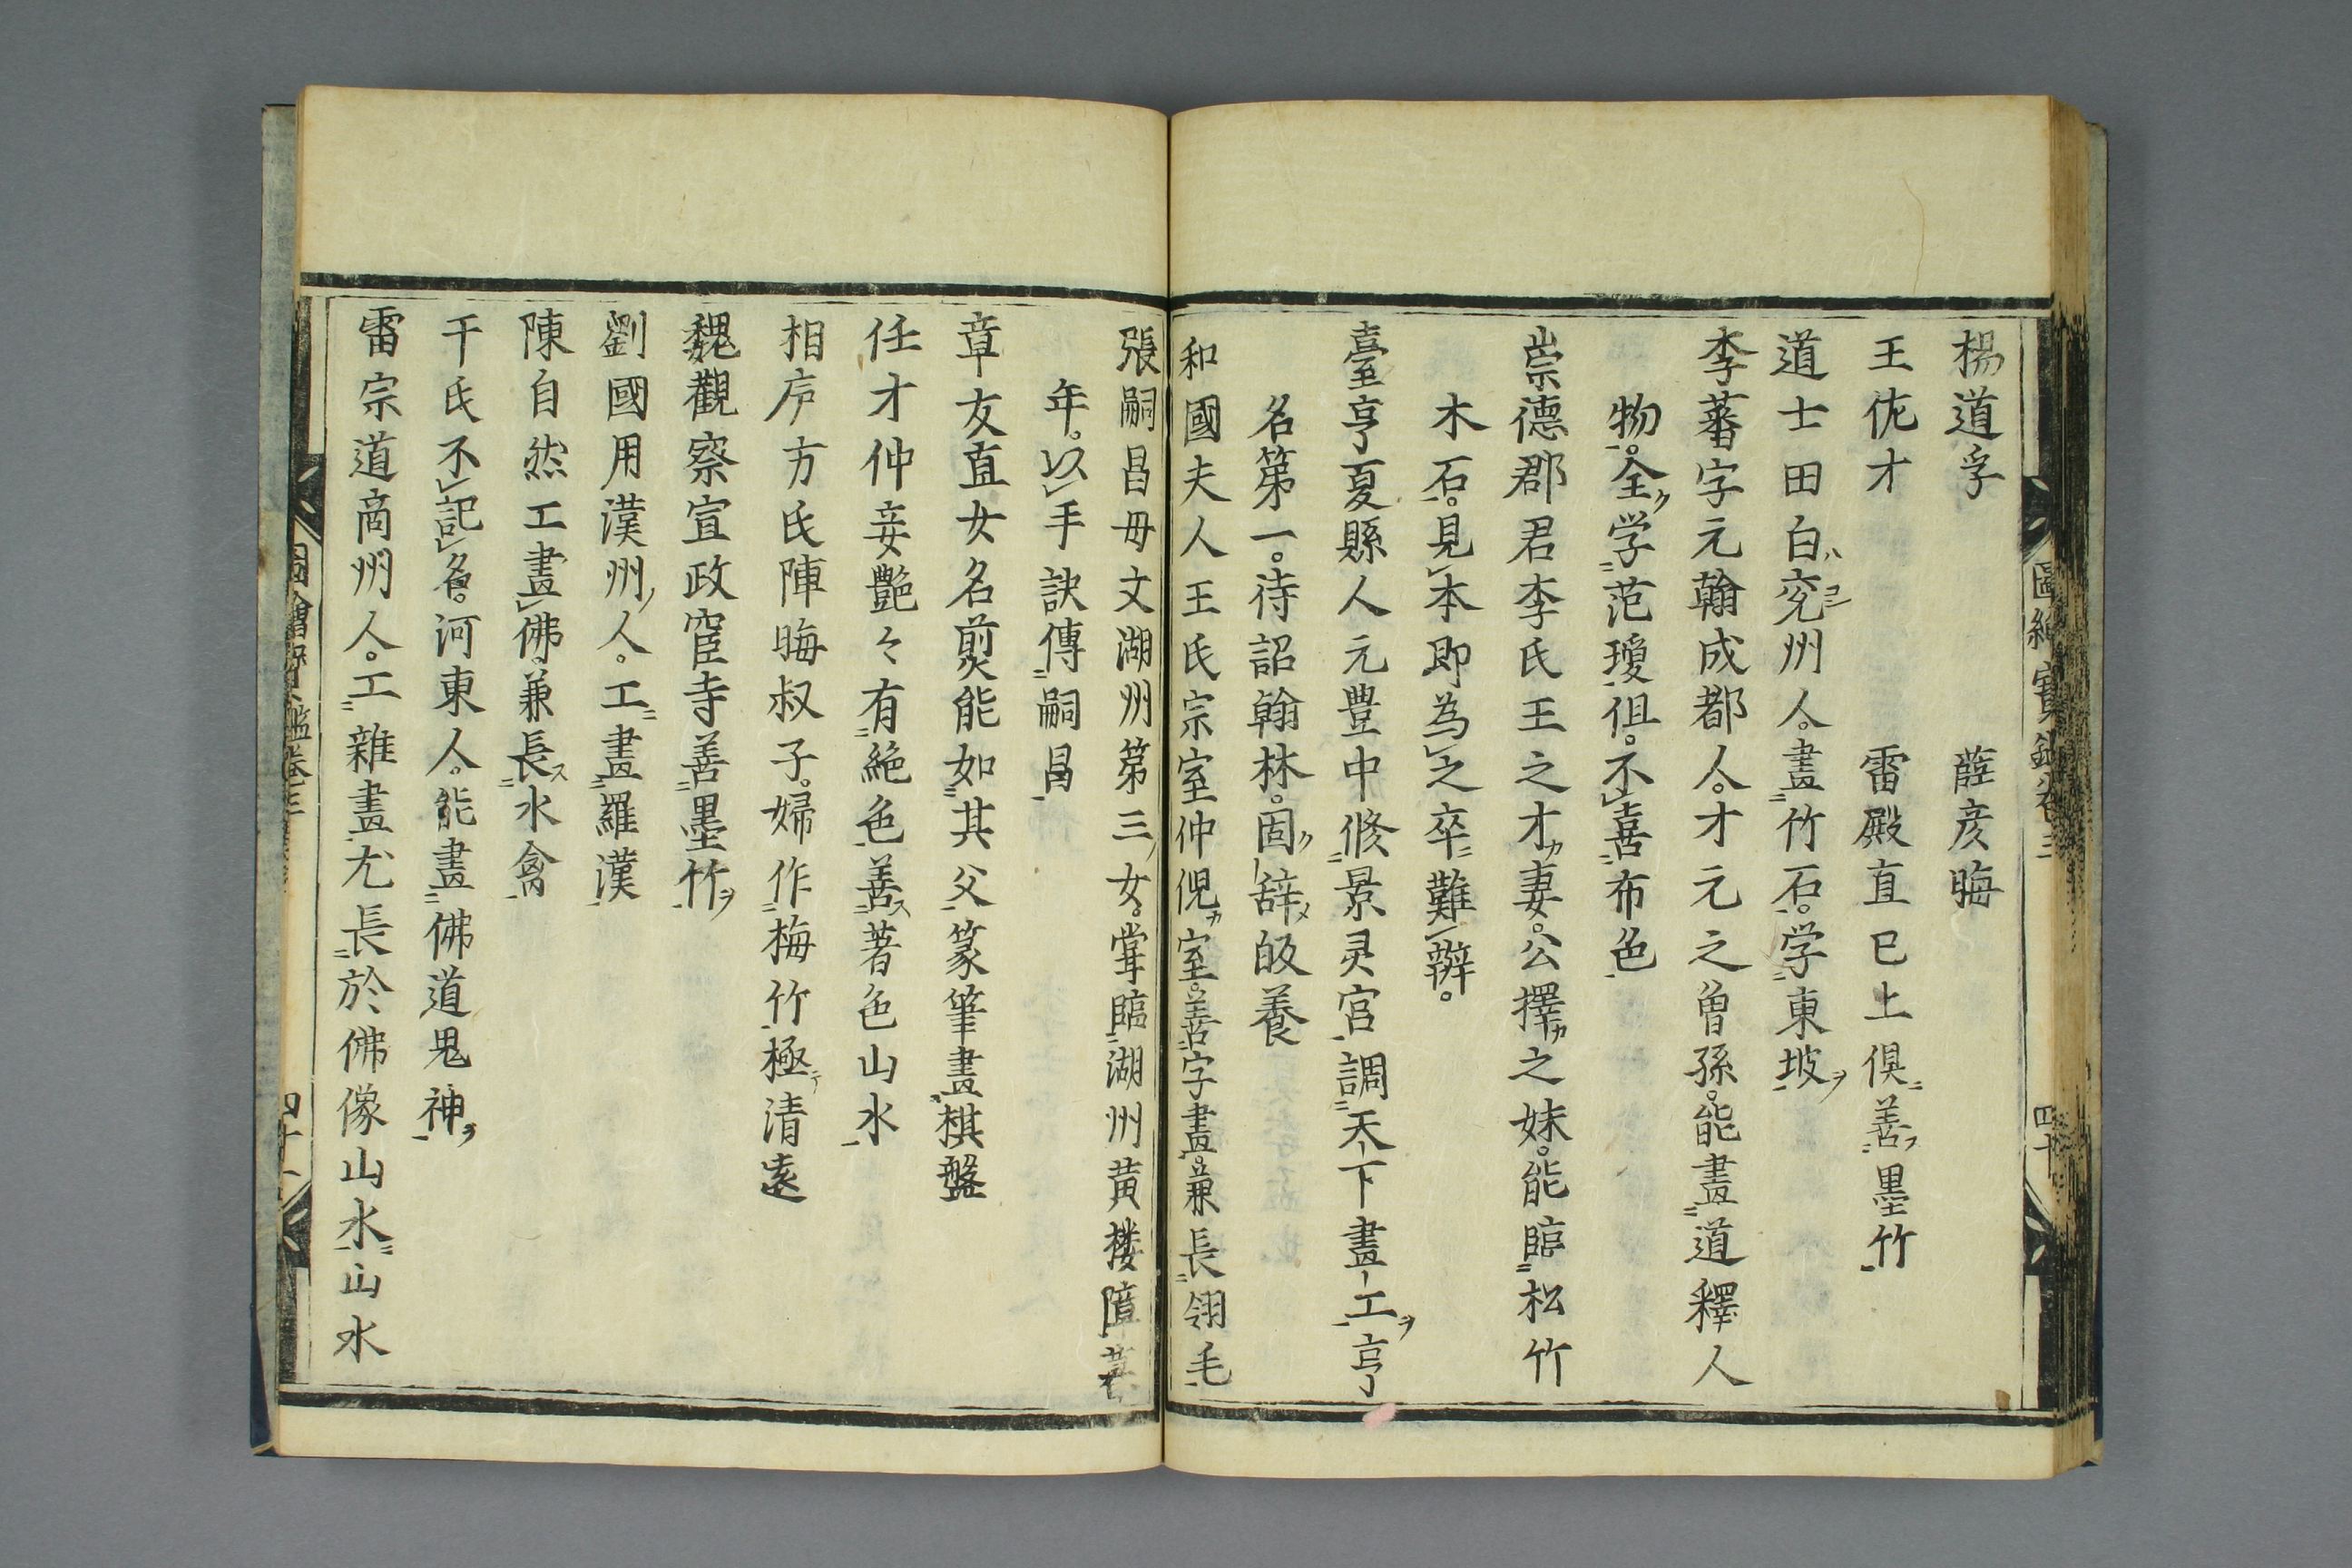 楊道孚 薛彦晦
王佐才 雷殿直已上俱善墨竹
道士田白兖州人。畫竹石。学東坡
李蕃字元翰成都人。才元之曽孫。能畫道釋人
物。全学范瓊但。不喜布色
崇德郡君李氏王之才妻。公擇之妹。能臨松竹
木石。見本即為之卒難辨。
臺亨夏縣人元豊中修景灵宫調天下畫工亨
名第一。待詔翰林。固辞皈養
和國夫人王氏宗室仲倪室。善字畫。兼長翎毛
張嗣昌毋文湖州第三女。甞臨湖州黄楼障
年。以手訣傳嗣昌
章友直女名煎能如其父篆筆畫棋盤
任才仲妾艷々有絶色善著色山水
相户方氏陳晦叔子。婦作梅竹極清遠
魏觀察宣政宦寺善墨竹
劉國用漢州人。工畫羅漢
陳自然工畫佛兼長水禽
于氏不記名。河東人。能畫佛道鬼神
雷宗道商州人。工雜畫尤長於佛像山水山水
圖繪寳鑑卷三
四十